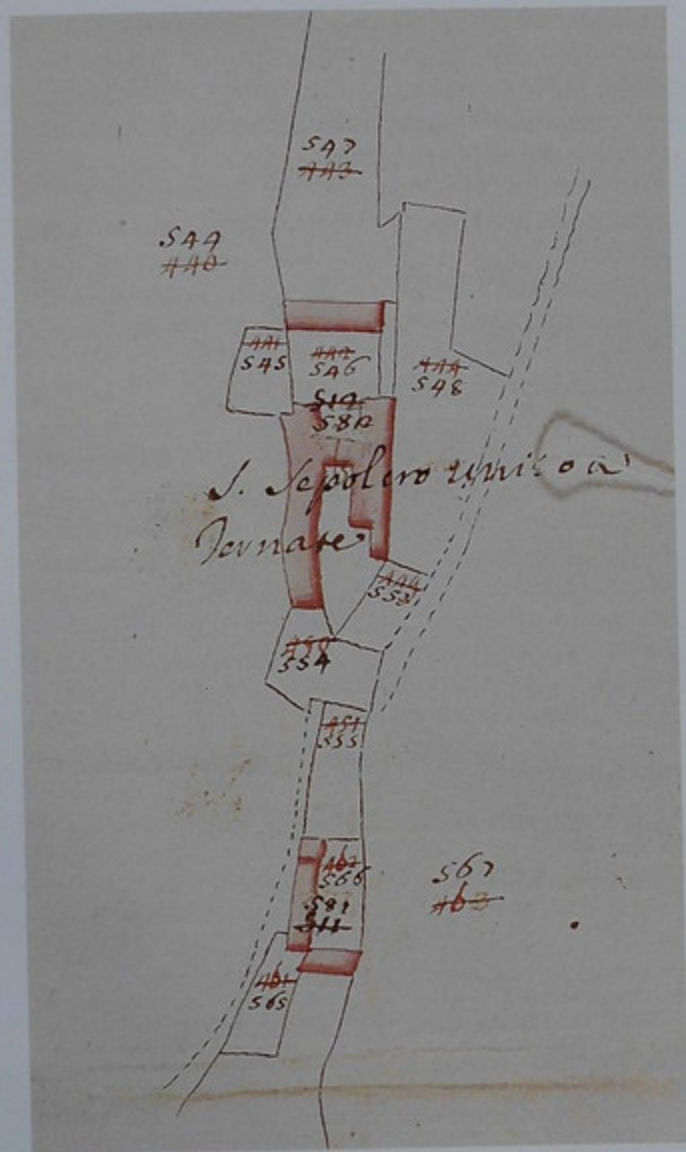 547
443
544
440
441
545
442
546
444
548
514
580
S. Sepolcro unito a
Ternate
449
553
450
554
451
555
462
566
581
511
567
463
461
565